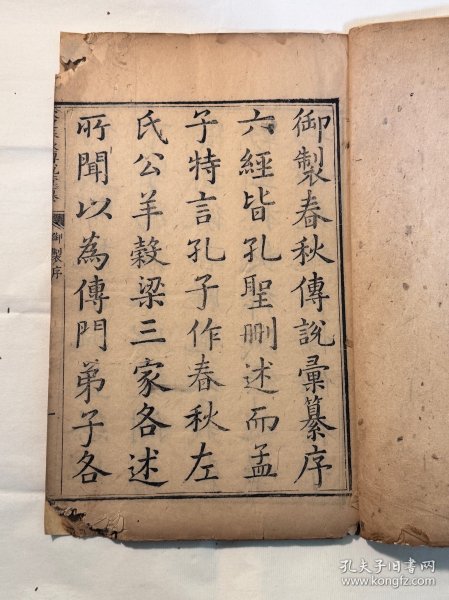 御製春秋傳說彙纂序
六經皆孔聖刪述而孟
子特言孔子作春秋左
氏公羊穀梁三家各述
所聞以為傳門弟子各
御製序
孔夫子旧书网
www.kongfz.com